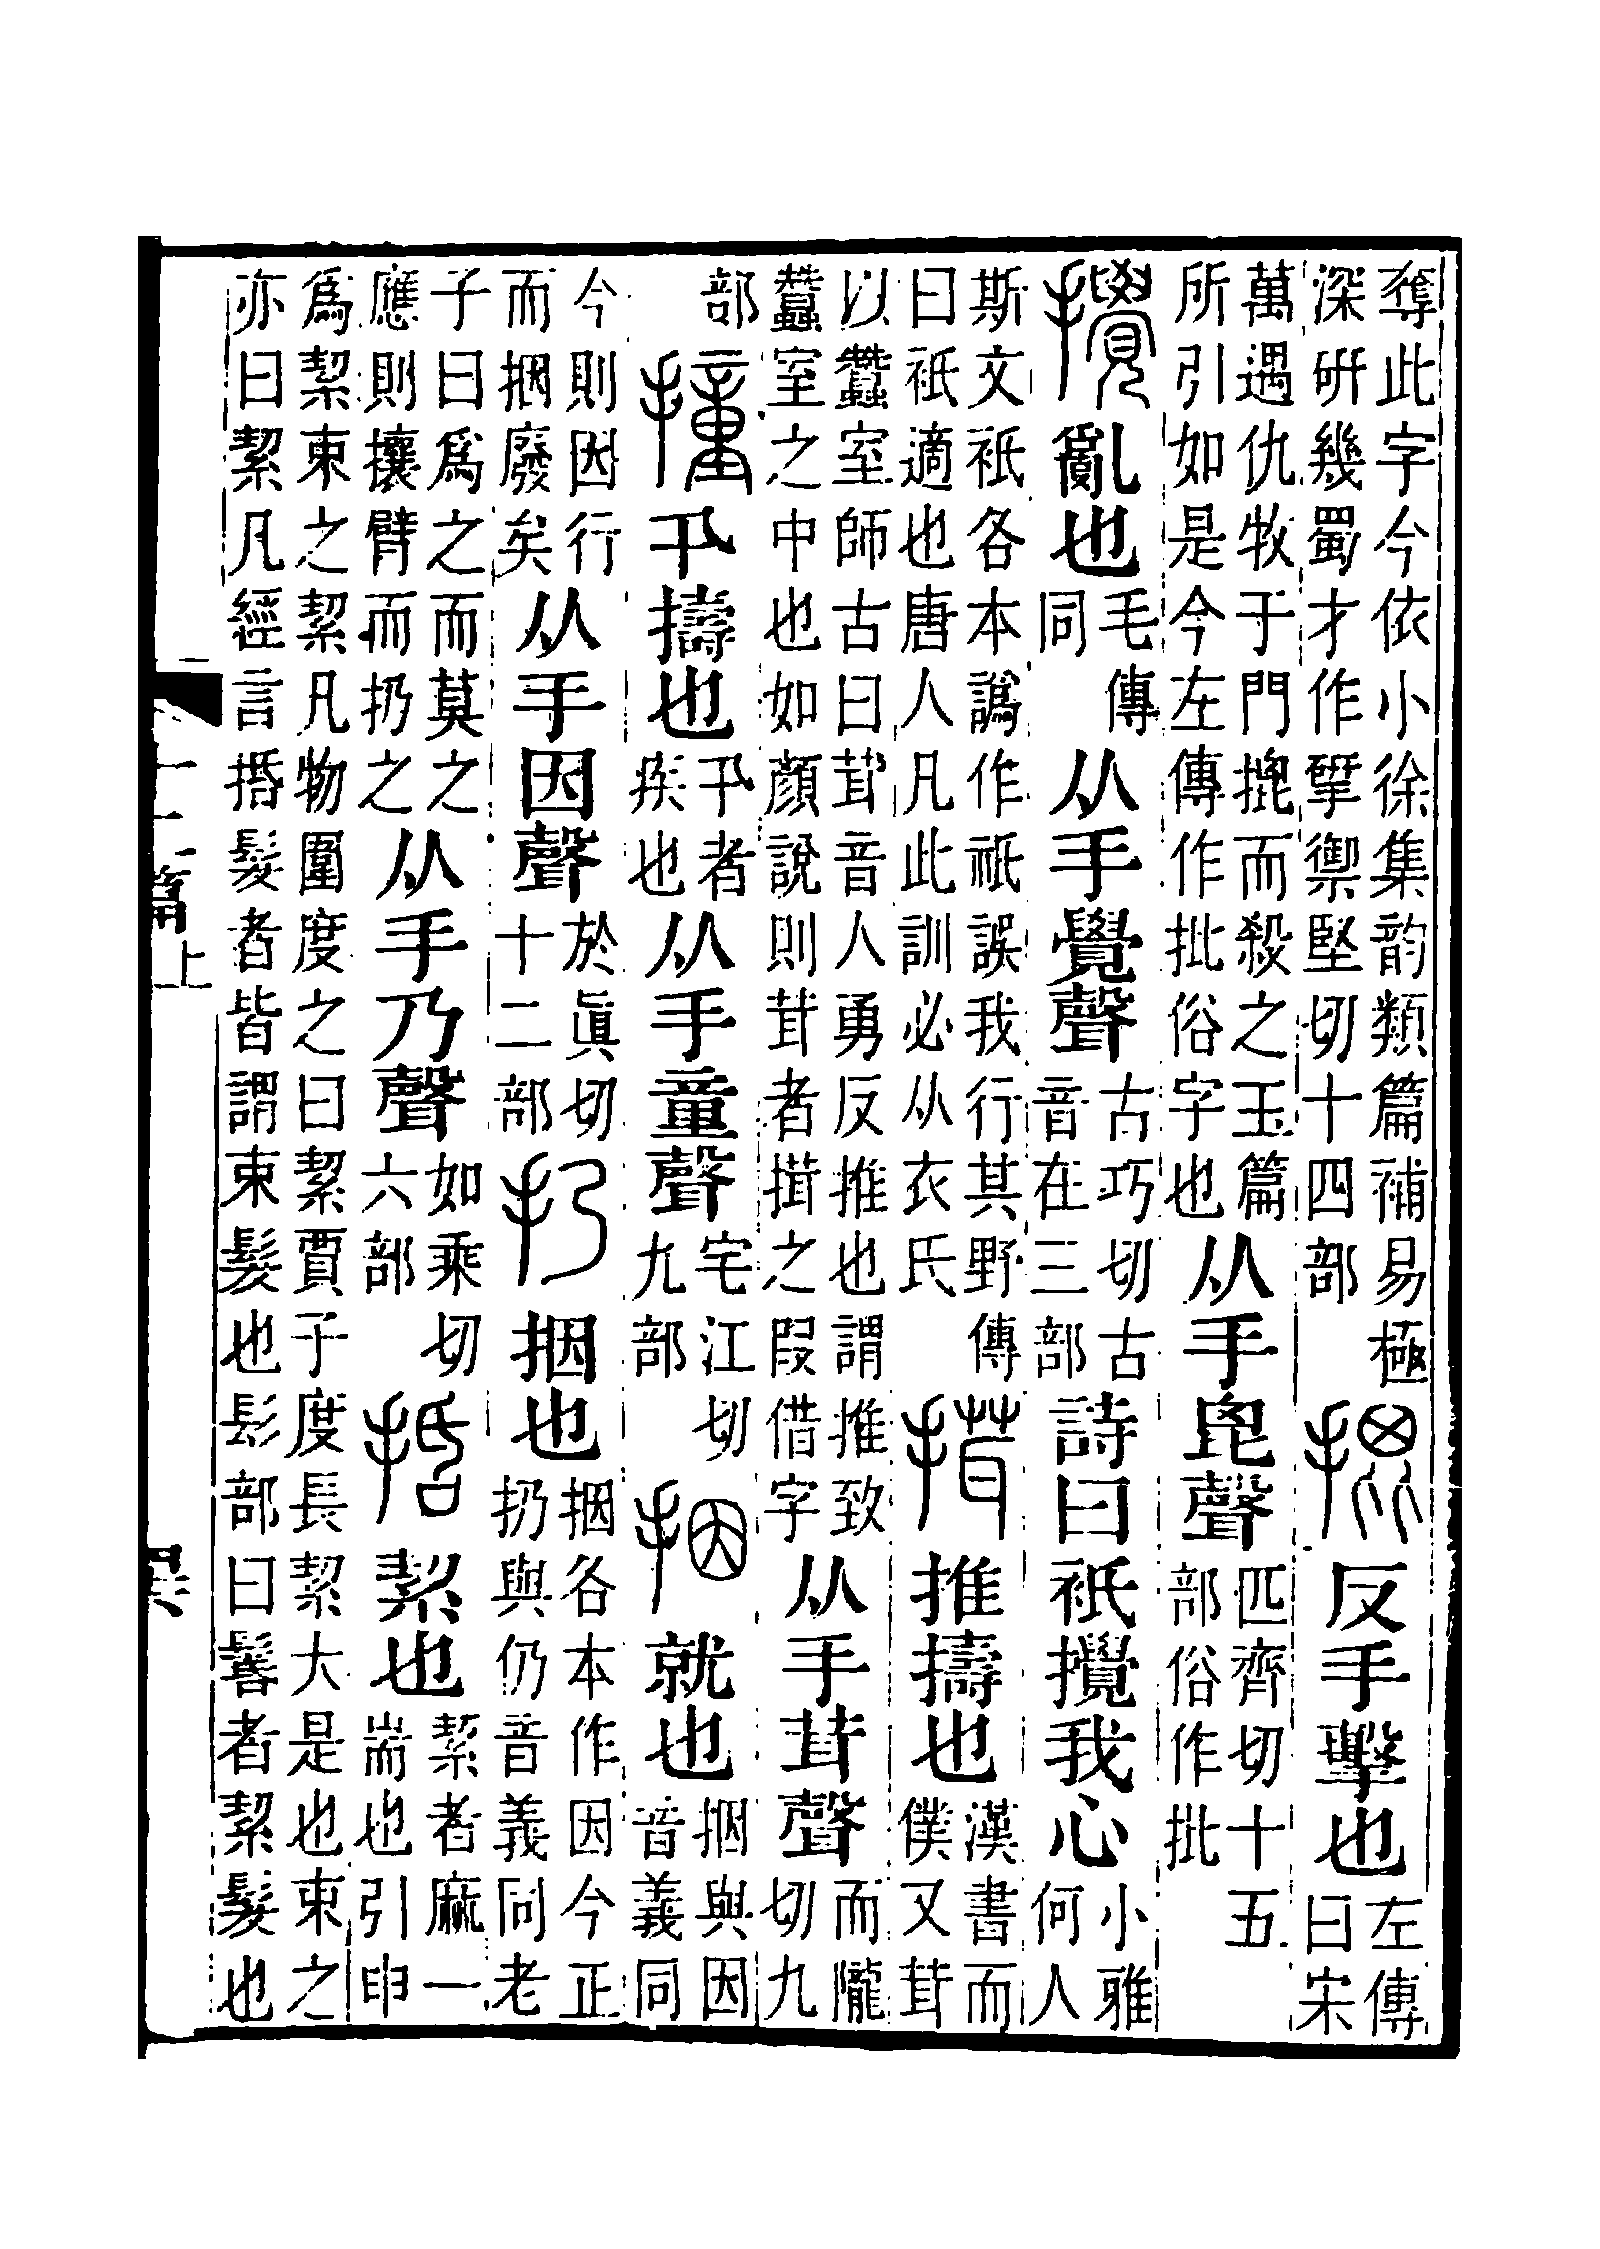 奪此字今依小徐集韵類篇補易極深硏幾蜀才作揅禦堅切十四部㨢反手擊也左傳曰宋
萬遇仇牧于門㨢而殺之玉篇所引如是今左傳作批俗字也从手𣬉聲匹齊切十五部俗作批
攪亂也毛傳同从手覺聲古巧切古音在三部詩曰祇攪我心小雅何人
斯文祇各本譌作祗誤我行其野傳曰祇適也唐人凡此訓必从衣氏搑推擣也漢書而僕又茸
以蠶室師古曰茸音人勇反推也謂推致蠶室之中也如顏說則茸者搑之叚借字从手茸聲而隴切九
部撞卂擣也卂者疾也从手童聲宅江切九部㧢就也㧢與因音義同
今則因行而㧢廢矣从手因聲於眞切十二部扔㧢也㧢各本作因今正扔與仍音義同老
子曰爲之而莫之應則攘臂而扔之从手乃聲如乘切六部括絜也絜者麻一耑也引申
爲絜束之絜凡物圍度之曰絜賈子度長絜大是也束之亦曰絜凡經言括髮者皆謂束髮也髟部曰髺者絜髮也
十二篇上